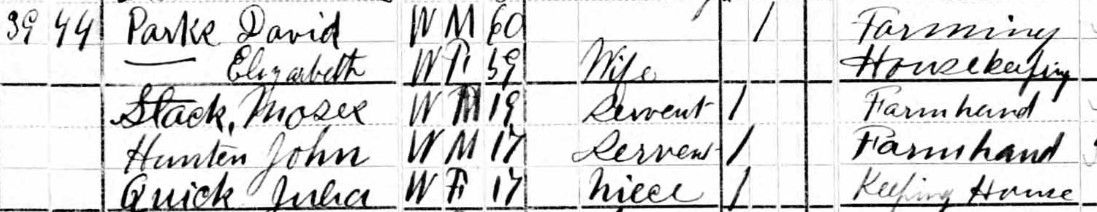 39 44 Parks David W M 60 / Farming
— Elizabeth W F 59 Wife Housekeeping
Stack, Moses W M 19 Servent / Farmhand
Hunten John W M 17 Servent / Farmhand
Quick Julia W F 17 Niece / Keeping House